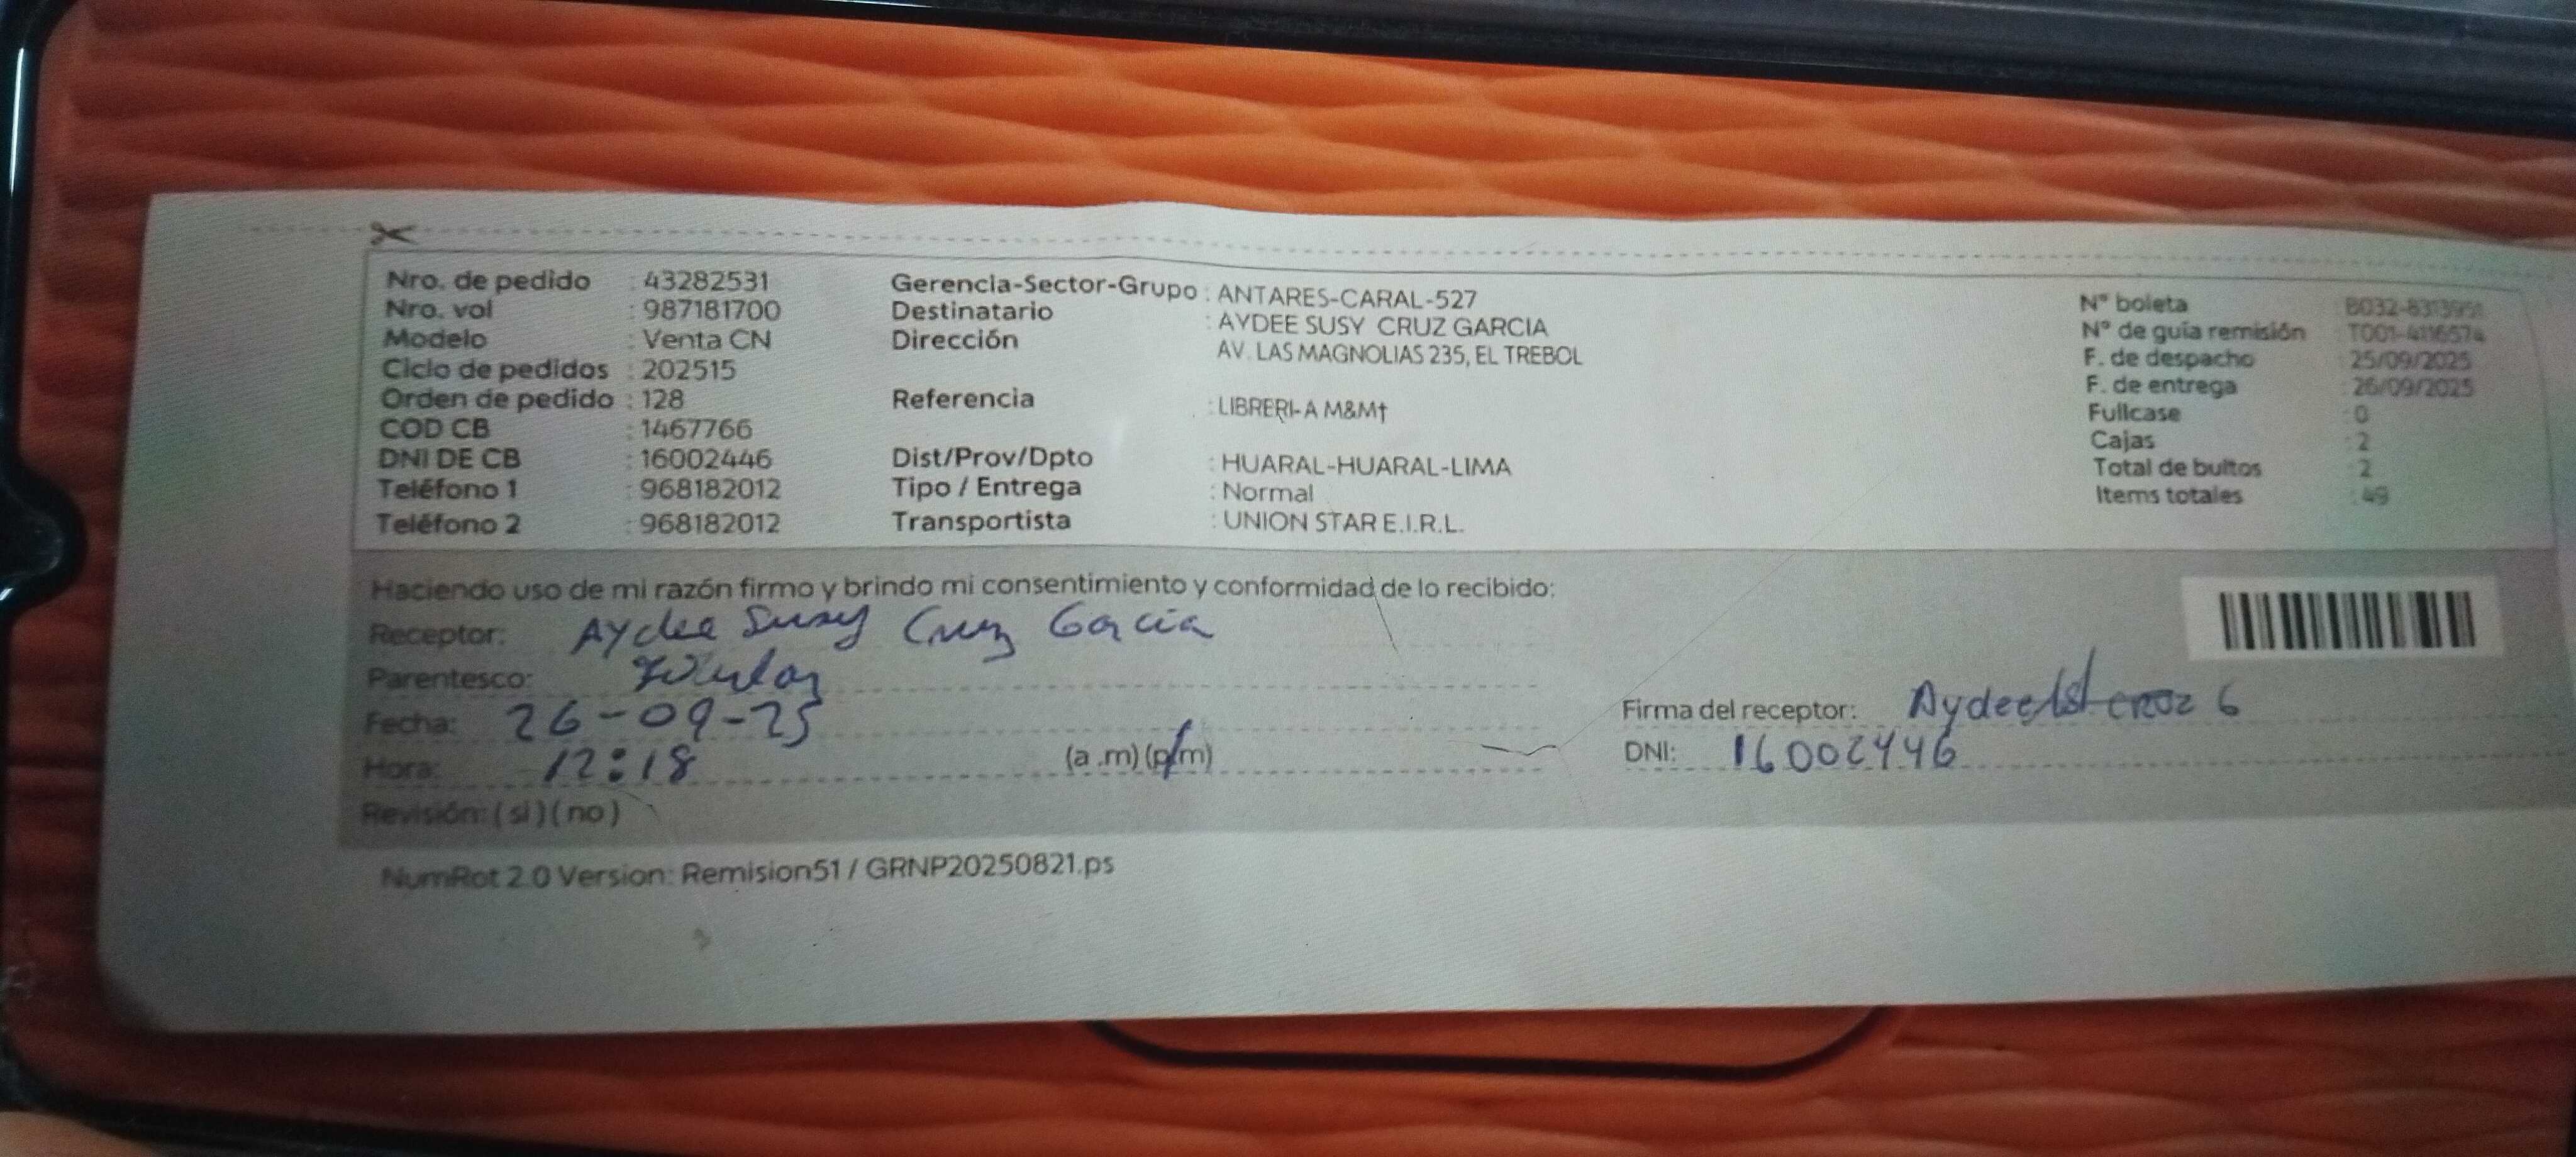 Nro. de pedido : 43282531
Nro. vol : 987181700
Modelo : Venta CN
Ciclo de pedidos : 202515
Orden de pedido : 128
COD CB : 1467766
DNI DE CB : 16002446
Teléfono 1 : 968182012
Teléfono 2 : 968182012
Gerencia-Sector-Grupo : ANTARES-CARAL-527
Destinatario : AYDEE SUSY CRUZ GARCIA
Dirección AV. LAS MAGNOLIAS 235, EL TREBOL
Referencia : LIBRERI-A M&M†
Dist/Prov/Dpto : HUARAL-HUARAL-LIMA
Tipo / Entrega : Normal
Transportista : UNION STAR E.I.R.L.
N° boleta : B032-8313951
N° de guía remisión : T001-4116574
F. de despacho : 25/09/2025
F. de entrega : 26/09/2025
Fullcase : 0
Cajas : 2
Total de bultos : 2
Items totales : 49
Haciendo uso de mi razón firmo y brindo mi consentimiento y conformidad de lo recibido:
Receptor: Aydee Susy Cruz Garcia
Parentesco:
Fecha: 26-09-25
Hora: 12:18 (a .m) (p/m)
Revisión: ( si ) ( no )
Firma del receptor: Aydee cruz G
DNI: 16002446
NumRot 2.0 Version: Remision51 / GRNP20250821.ps